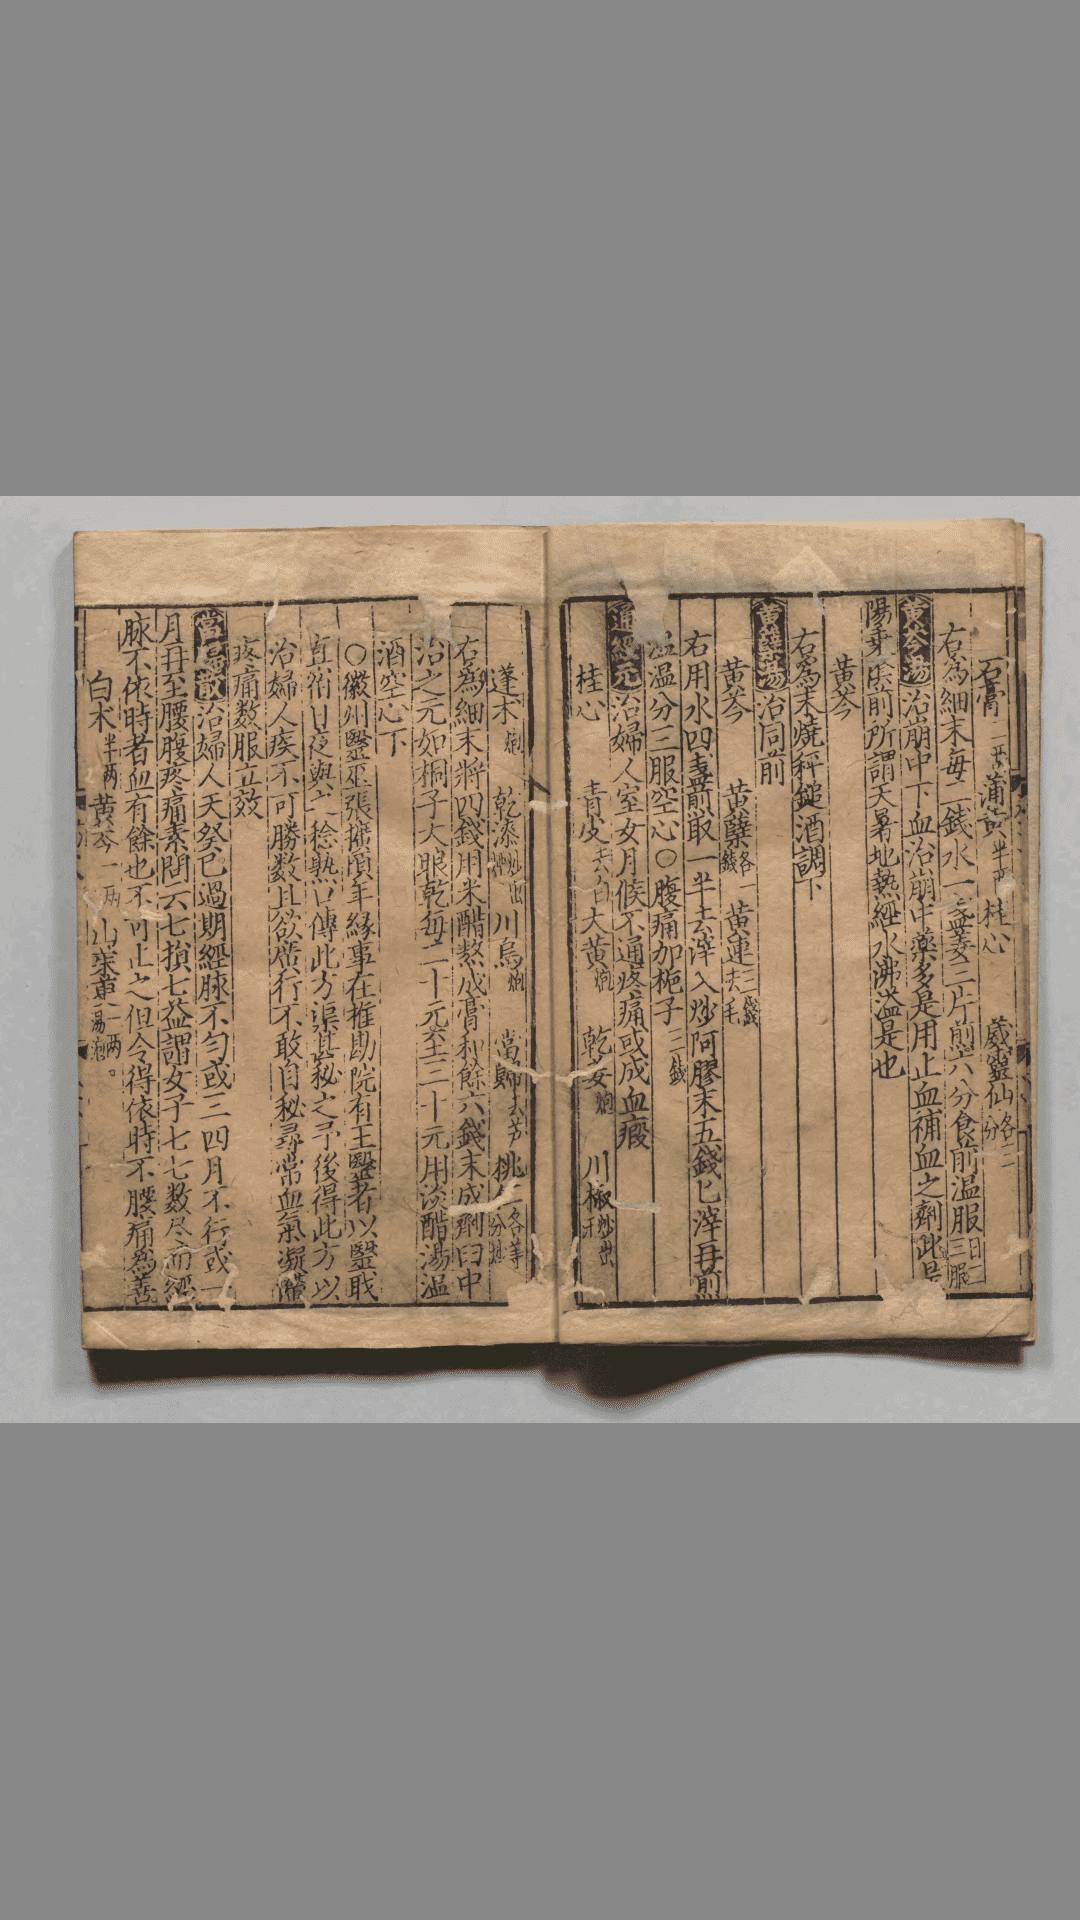 石膏一兩 蒲黄半兩 桂心 葳靈仙各二分
右為細末每二錢水一盞姜三片煎六分食前温服日二三服
黄芩湯 治崩中下血治崩中藥多是用止血補血之劑此是
陽乗陰前所謂天暑地熱經水沸溢是也
黄芩
右為末燒秤鎚酒調下
黄蘖湯 治同前
黄芩 黄蘖各一錢 黄連去毛三錢
右用水四盞煎取一半去滓入炒阿膠末五錢匕滓再煎
温分三服空心〇腹痛加梔子三錢
通經元 治婦人室女月候不通疼痛或成血瘕
桂心 青皮去白 大黄炮 乾姜炮 川椒炒出
蓬术炮 乾漆炒出烟 川烏炮 當歸去芦 桃仁各等分炒
右為細末將四錢用米醋熬成膏和餘六錢末成劑臼中
治之元如桐子大眼乾每二十元至三十元用淡醋湯温
酒空心下
〇徽州毉巫張擴頃年緣事在推勘院有王毉者以毉職
直宿日夜與之稔熟口傳此方渠甚秘之予後得此方以
治婦人疾不可勝数且欲廣行不敢自秘尋常血氣凝滯
疼痛数服立效
當歸散 治婦人天癸已過期經脉不匀或三四月不行或一
月再至腰腹疼痛素問云七損七益謂女子七七数尽而經
脉不依時者血有餘也不可止之但令得依時不腰痛為善
白术半兩 黄芩一兩 山茱萸湯泡一兩